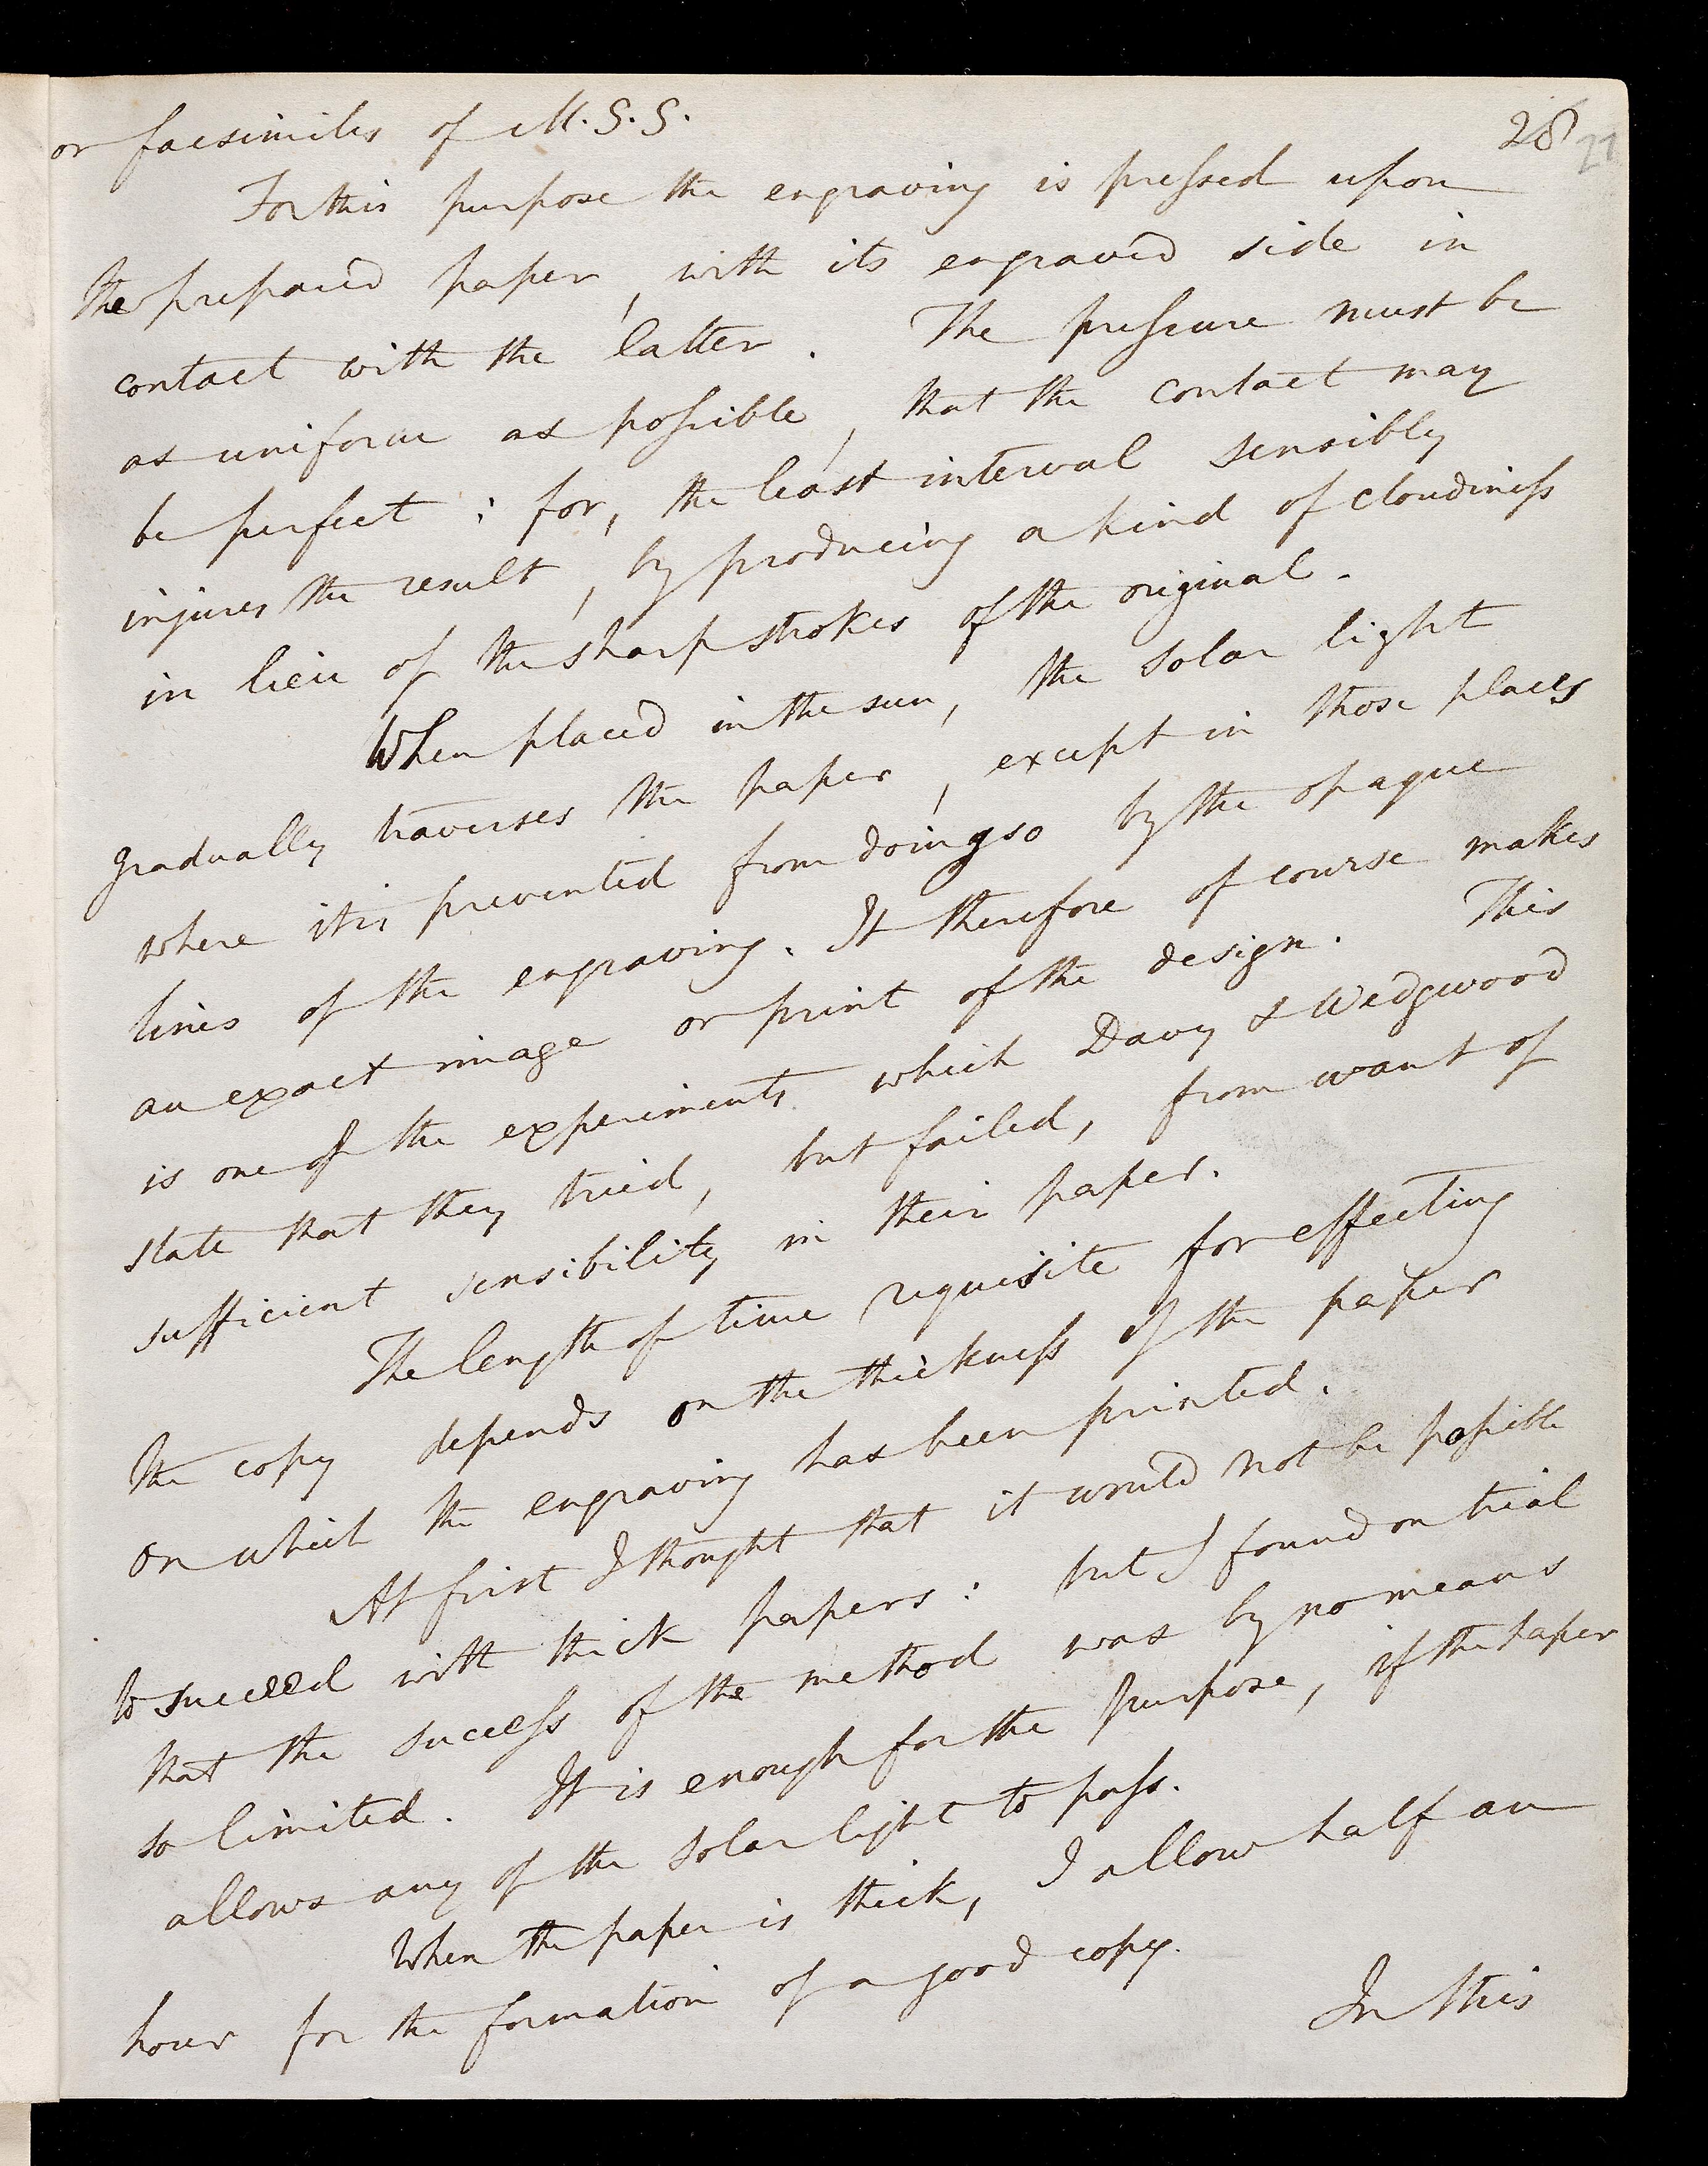 or facsimiles of M.S.S.
28 27
For this purpose the engraving is pressed upon
the prepared paper, with its engraved side in
contact with the latter. The pressure must be
as uniform as possible, that the contact may
be perfect; for, the least interval sensibly
injures the result, by producing a kind of cloudiness
in lieu of the sharp strokes of the original.
When placed in the sun, the solar light
gradually traverses the paper, except in those places
where it is prevented from doing so by the opaque
lines of the engraving. It therefore of course makes
an exact image or print of the design. This
is one of the experiments which Davy & Wedgwood
state that they tried, but failed, from want of
sufficient sensibility in their paper.
The length of time requisite for effecting
the copy depends on the thickness of the paper
on which the engraving has been printed.
At first I thought that it would not be possible
to succeed with thick papers: but I found on trial
that the success of the method was by no means
so limited. It is enough for the purpose, if the paper
allows any of the solar light to pass.
When the paper is thick, I allow half an
hour for the formation of a good copy.
In this